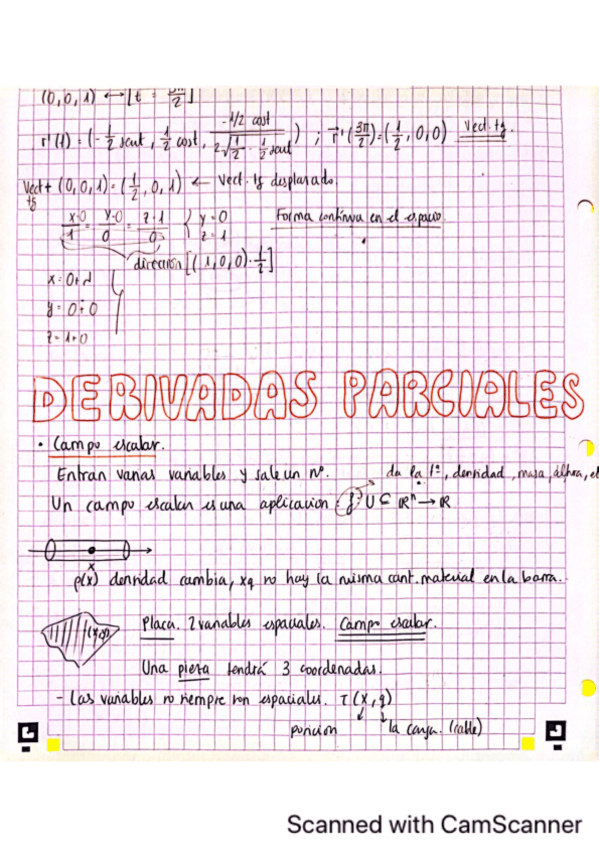 (0,0,1) ⟷ [t = 3π/2]
r'(t) = (-1/2 sent, 1/2 cost, -1/2 cost / 2√(1/2 - 1/2 sent)) ; r⃗'(3π/2) = (1/2, 0, 0) Vect. tg.
Vect tg (0,0,1) = (1/2, 0, 1) ← Vect. tg desplazado.
x-0/1 = y-0/0 = z-1/0 { y=0 z=1 Forma continua en el espacio.
dirección [(1,0,0)·1/2]
x = 0+λ
y = 0+0
z = 1+0
DERIVADAS PARCIALES
• Campo escalar.
Entran varias variables y sale un nº. da la Tª, densidad, masa, altura, el
Un campo escalar es una aplicación: f: U ⊆ ℝⁿ → ℝ
x
ρ(x) densidad cambia, xq no hay la misma cant. material en la barra.
(x,y) Placa. 2 variables espaciales. Campo escalar.
Una pieza tendrá 3 coordenadas.
- Las variables no siempre son espaciales. T(x,q)
posición la carga. (cable)
Scanned with CamScanner